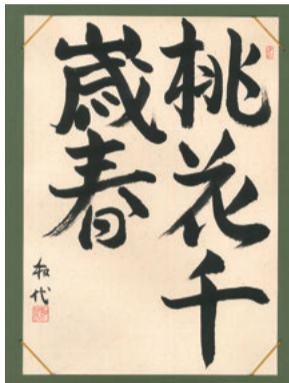 桃花千
歳春
和代